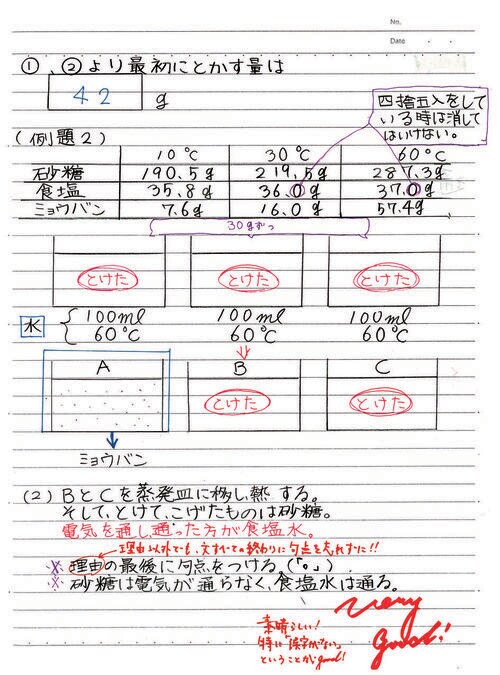 No.
Date
①、②より最初にとかす量は
42 g
四捨五入をして
いる時は消して
はいけない。
(例題2)
10℃ 30℃ 60℃
砂糖 190.5g 219.5g 287.3g
食塩 35.8g 36.0g 37.0g
ミョウバン 7.6g 16.0g 57.4g
30gずつ
とけた とけた とけた
水 { 100ml 60℃ 100ml 60℃ 100ml 60℃
A B C
とけた とけた
ミョウバン
(2) BとCを蒸発皿に移し、熱する。
そして、とけて、こげたものは砂糖。
電気を通し、通った方が食塩水。
理由以外でも、文すべての終わりに句点を忘れずに!!
※理由の最後に句点をつける。(「。」)
※砂糖は電気が通らなく、食塩水は通る。
素晴らしい!
特に「誤字がない」
ということがgood!
Very
Good!